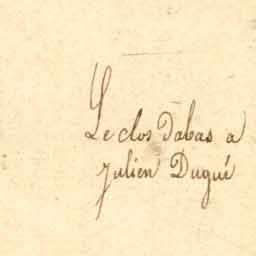 Le clos Dabas a
Julien Dugué